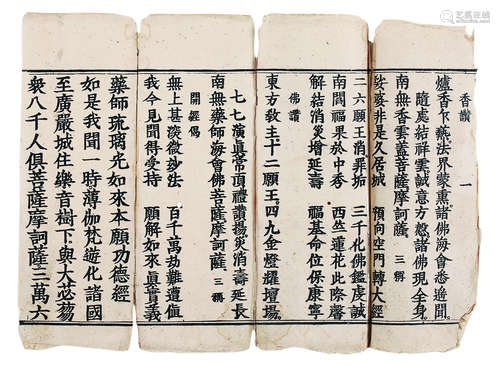 香讚 一
爐香乍爇法界蒙熏諸佛海會悉遥聞
隨處結祥雲誠意方慇諸佛現全身
南無香雲蓋菩薩摩訶薩 三稱
娑婆非是久居城 預向空門轉大經
二六願王消罪垢 三千化佛鑑虔誠
南閻福果於中秀 西竺蓮花此際馨
解結消災增延壽 福基命位保康寧
佛讚
東方敎主十二願王四九金燈耀壇場
七七演眞常頂禮讚揚災消壽延長
南無藥師海會佛菩薩摩訶薩 三稱
開經偈
無上甚深微妙法 百千萬劫難遭值
我今見聞得受持 願解如來眞實義
藥師琉璃光如來本願功德經
如是我聞一時薄伽梵遊化諸國
至廣嚴城住樂音樹下與大苾芻
衆八千人俱菩薩摩訶薩三萬六